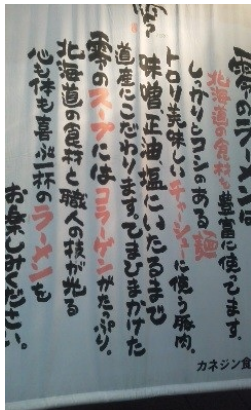 零ラーメンは
北海道の食材を豊富に使ってます。
しっかりとコシのある麺
トロリ美味しいチャーシューに使う豚肉。
味噌、正油、塩にいたるまで
道産にこだわります。ひまひまかけた
零のスープにはコラーゲンがたっぷり。
北海道の食材と職人の技が光る
心も体も喜ぶ一杯のラーメンを
お楽しみください。
カネジン食